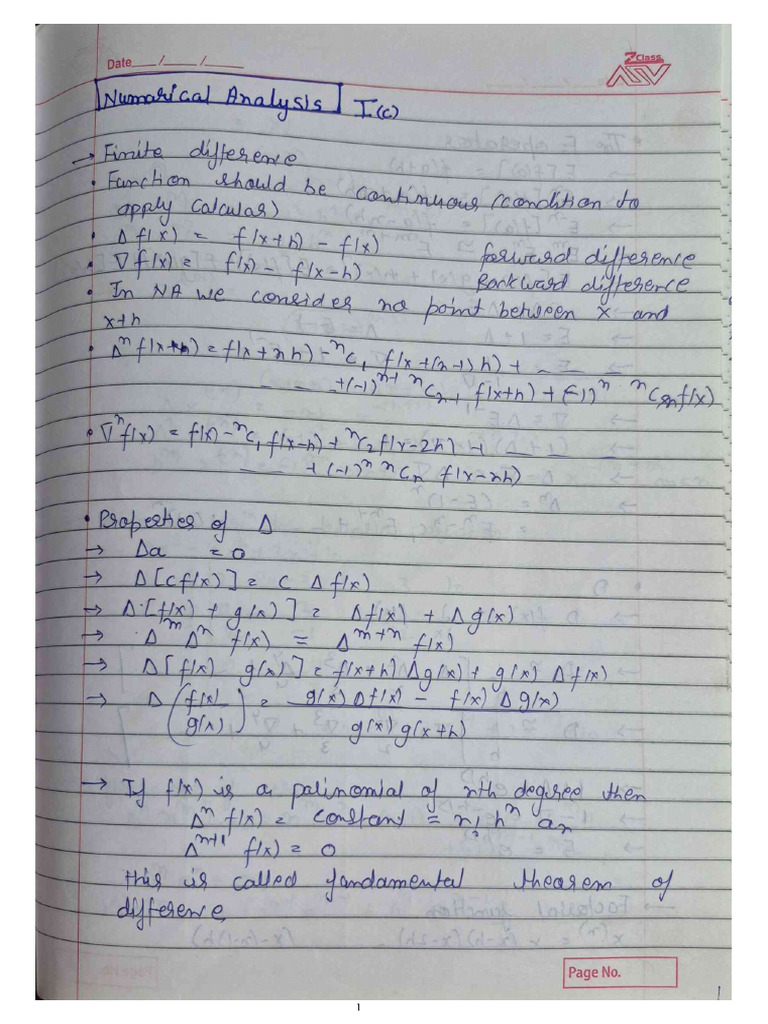 Date___/___/___
Z Class
ASV
Numarical Analysis I(c)
→ Finite difference
• Function should be continuous (condition to
apply calcular)
• Δ f(x) = f(x+h) - f(x) forward difference
• ∇ f(x) = f(x) - f(x-h) Backward difference
• In NA we consider no point between x and
x+h
• Δⁿ f(x+h) = f(x+nh) - ⁿC₁ f(x+(n-1)h) + _ _ _
_ _ +(-1)ⁿ⁻¹ ⁿCₙ₋₁ f(x+h) + (-1)ⁿ ⁿCₙ f(x)
• ∇ⁿ f(x) = f(x) - ⁿC₁ f(x-h) + ⁿC₂ f(x-2h) + _ _ _
_ _ + (-1)ⁿ ⁿCₙ f(x-nh)
• Properties of Δ
→ Δa = 0
→ Δ[cf(x)] = c Δ f(x)
→ Δ·[f(x) + g(x)] = Δf(x) + Δg(x)
→ Δᵐ Δⁿ f(x) = Δᵐ⁺ⁿ f(x)
→ Δ[f(x) g(x)] = f(x+h) Δg(x) + g(x) Δ f(x)
→ Δ (f(x)/g(x)) = g(x) Δf(x) - f(x) Δg(x) / g(x) g(x+h)
→ If f(x) is a palinomial of nth degree then
Δⁿ f(x) = constant = n! hⁿ aₙ
Δⁿ⁺¹ f(x) = 0
this is called fandamental thearem of
difference
Page No.
1
1